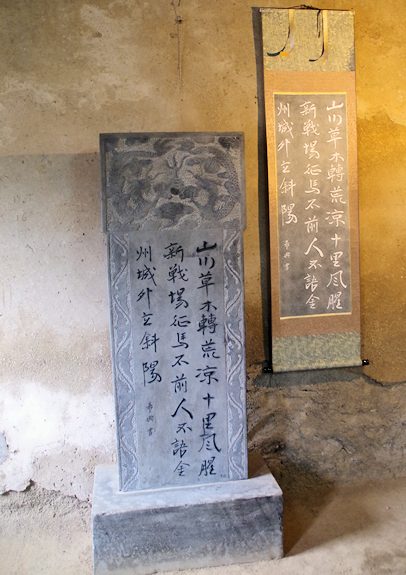 山川草木轉荒凉十里風腥
新戦場征馬不前人不語金
州城外立斜陽
希典書
山川草木轉荒凉十里風腥
新戦場征馬不前人不語金
州城外立斜陽
希典書